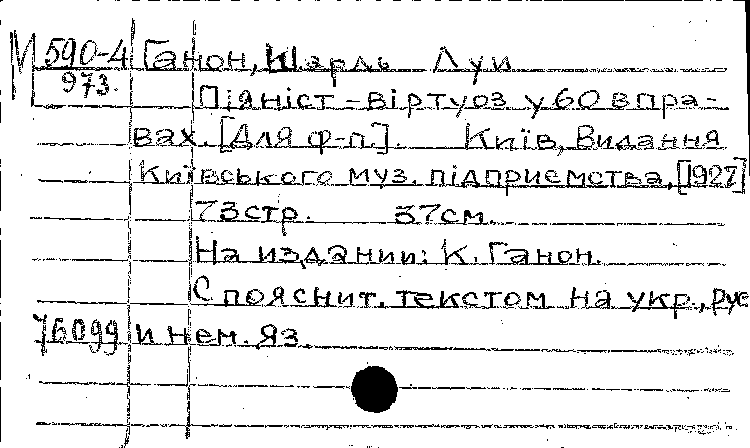 М 590-4 Ганон, Шарль Луи
973.
Піяніст-віртуоз у 60 впра-
вах. [Для ф-п.]. Київ, Видання
Київського муз. підприємства, [1927]
73стр. 37см.
На издании: К. Ганон.
С пояснит. текстом на укр., рус
76099 и нем. яз.